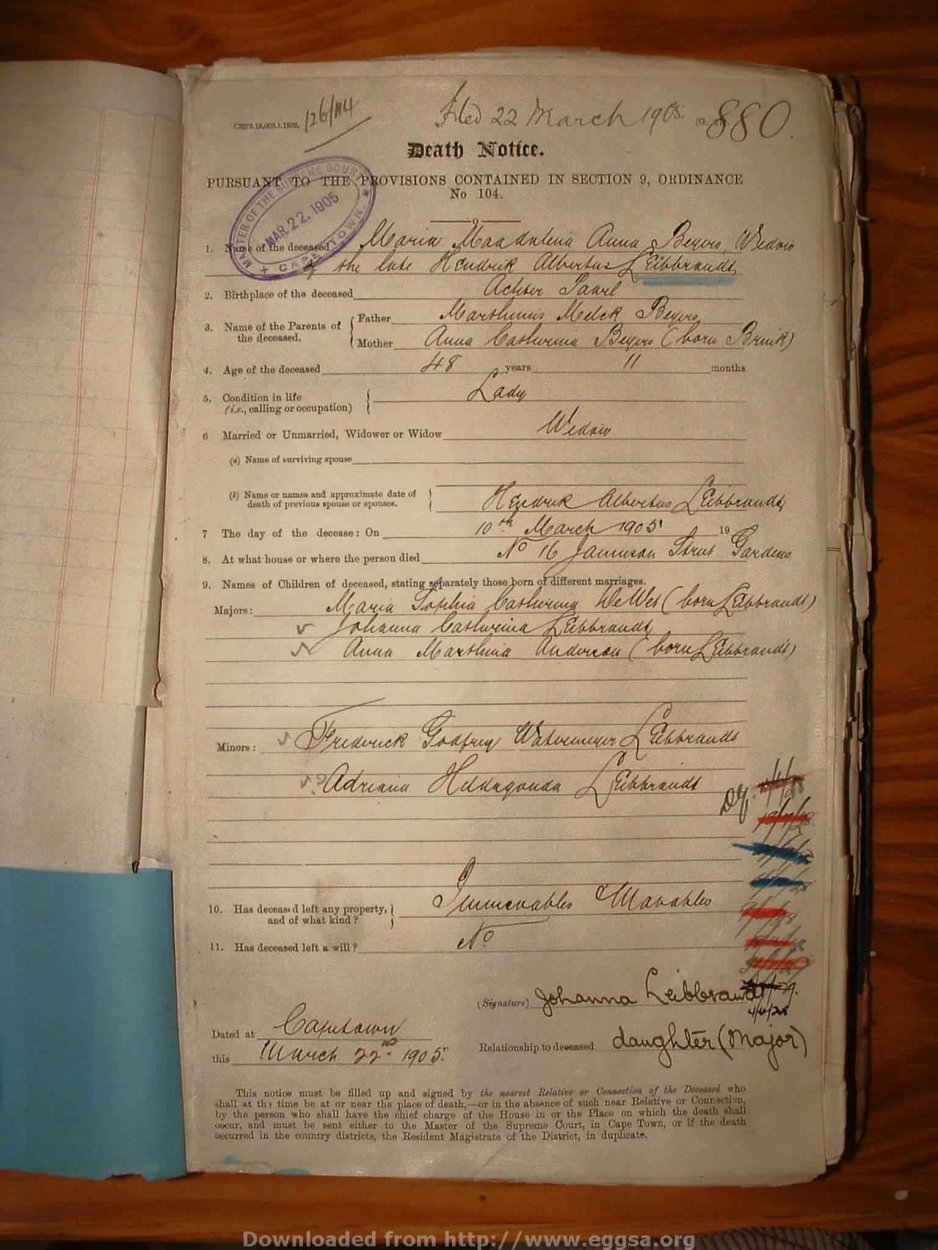 C2373.18,000.1.1902. 126/114
Filed 22 March 1905. 880.
Death Notice.
PURSUANT TO THE PROVISIONS CONTAINED IN SECTION 9, ORDINANCE
No 104.
MASTER OF THE SUPREME COURT
MAR. 22. 1905
CAPE TOWN
1. Name of the deceased Maria Magdalena Anna Beyers, Widow
of the late Hendrik Albertus Leibbrandt
2. Birthplace of the deceased Achter Paarl
3. Name of the Parents of the deceased. Father Marthinus Melck Beyers
Mother Anna Catherina Beyers (born Brink)
4. Age of the deceased 48 years 11 months
5. Condition in life
(i.e., calling or occupation) Lady
6 Married or Unmarried, Widower or Widow Widow
(a) Name of surviving spouse
(b) Name or names and approximate date of
death of previous spouse or spouses. Hendrik Albertus Leibbrandt
7 The day of the decease: On 10th March 1905 19
8. At what house or where the person died No 16 Jamieson Street Gardens
9. Names of Children of deceased, stating separately those born of different marriages.
Majors: Maria Sophia Catherina De Wet (born Leibbrandt)
Johanna Catherina Leibbrandt
Anna Marthina Anderson (born Leibbrandt)
Minors: Frederick Godfrey Watermeyer Leibbrandt
Adriana Hildagonda Leibbrandt
10. Has deceased left any property,
and of what kind? Immovables Movables
11. Has deceased left a will? No
(Signature) Johanna Leibbrandt
4/6/28
Dated at Capetown
this March 22nd 1905
Relationship to deceased daughter (Major)
This notice must be filled up and signed by the nearest Relative or Connection of the Deceased who
shall at the time be at or near the place of death,—or in the absence of such near Relative or Connection,
by the person who shall have the chief charge of the House in or the Place on which the death shall
occur, and must be sent either to the Master of the Supreme Court, in Cape Town, or if the death
occurred in the country districts, the Resident Magistrate of the District, in duplicate.
Downloaded from http://www.eggsa.org